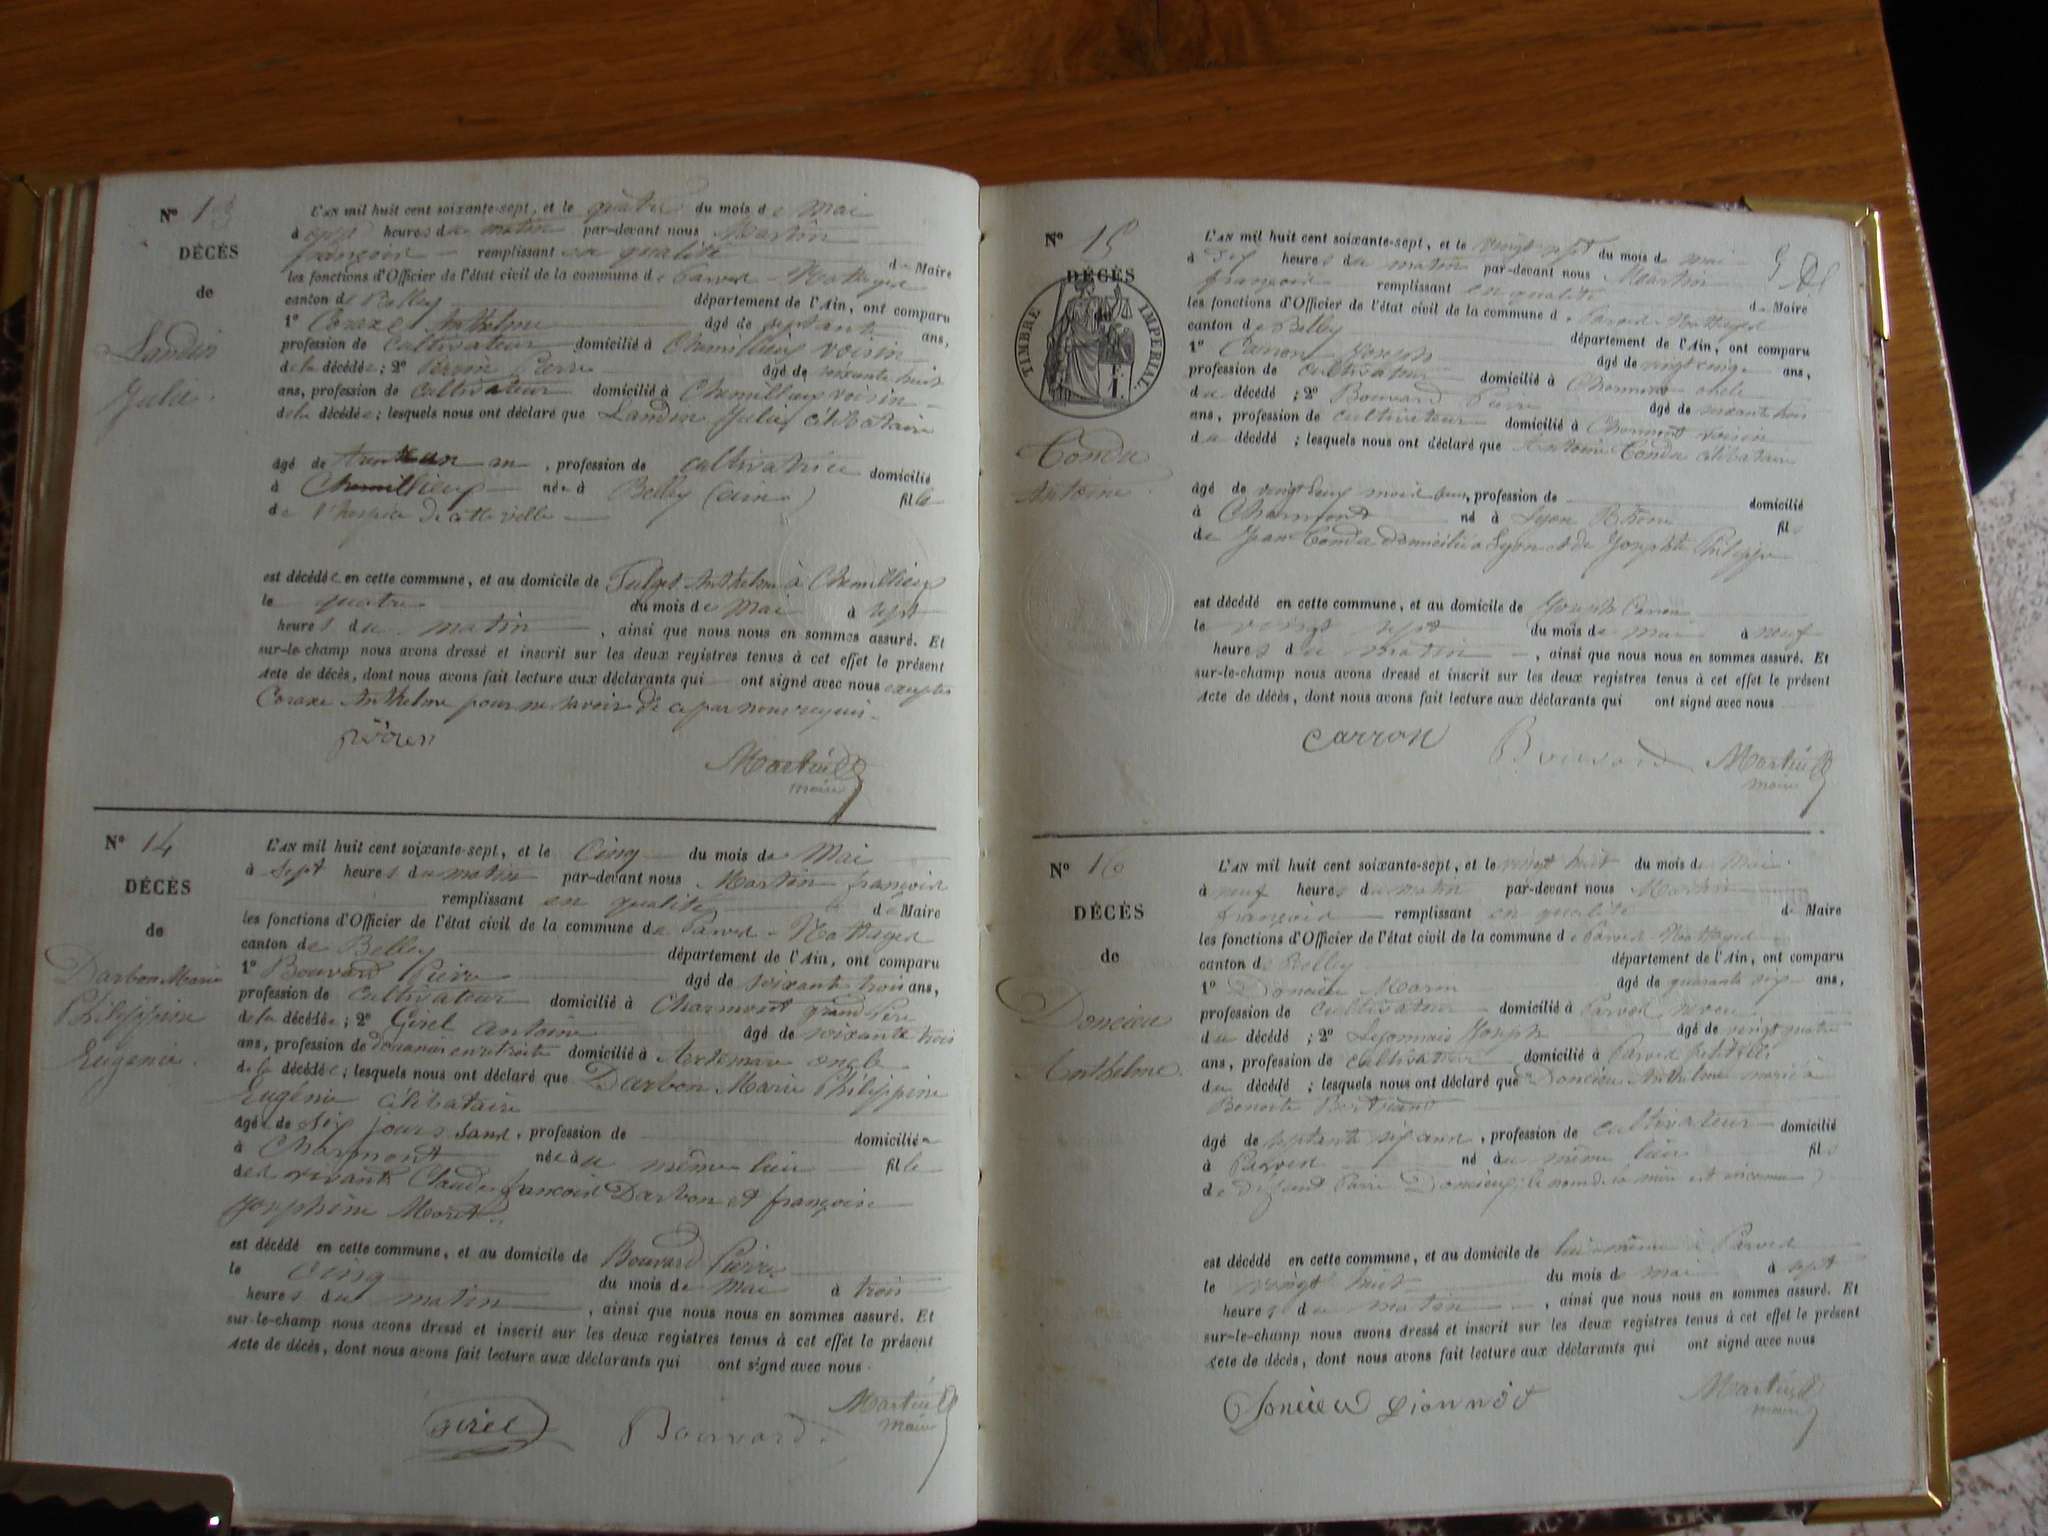 N° 13
DÉCÈS
de
Landin
Julie.
L'AN mil huit cent soixante-sept, et le quatre du mois de Mai
à sept heures du matin par-devant nous Martin
françois remplissant en qualité de Maire
les fonctions d'Officier de l'état civil de la commune de Parves-Nattages
canton de Belley département de l'Ain, ont comparu
1° Anthelme âgé de septante ans,
profession de cultivateur domicilié à Chemillieux voisin
de la décédée; 2° Pierre âgé de soixante huit
ans, profession de cultivateur domicilié à Chemillieux voisin
de la décédée; lesquels nous ont déclaré que Landin Julie célibataire
âgé de , profession de cultivatrice domicilié
à Chemillieux née à Belley (ain) fille
de l'hospice de cette ville
est décédée en cette commune, et au domicile de Anthelme à Chemillieux
le quatre du mois de Mai à sept
heures du matin, ainsi que nous nous en sommes assuré. Et
sur-le-champ nous avons dressé et inscrit sur les deux registres tenus à cet effet le présent
Acte de décès, dont nous avons fait lecture aux déclarants qui ont signé avec nous excepté
Anthelme pour ne savoir de ce par nous requis.
Martin
maire
N° 14
DÉCÈS
de
Darbon Marie
Philippine
Eugénie.
L'AN mil huit cent soixante-sept, et le Cinq du mois de Mai
à Sept heures du matin par-devant nous Martin françois
remplissant en qualité de Maire
les fonctions d'Officier de l'état civil de la commune de Parves-Nattages
canton de Belley département de l'Ain, ont comparu
1° Bouvard Pierre âgé de soixante trois ans,
profession de cultivateur domicilié à Charmont grand Père
de la décédée; 2° Girel Antoine âgé de soixante trois
ans, profession de douanier en retraite domicilié à Artemare oncle
de la décédée; lesquels nous ont déclaré que Darbon Marie Philippine
Eugénie célibataire
âgé de six jours sans, profession de domiciliée
à Charmont née au même lieu fille
des vivants Claude françois Darbon et françoise
Josephine Moret.
est décédé en cette commune, et au domicile de Bouvard Pierre
le cinq du mois de Mai à trois
heures du matin, ainsi que nous nous en sommes assuré. Et
sur-le-champ nous avons dressé et inscrit sur les deux registres tenus à cet effet le présent
Acte de décès, dont nous avons fait lecture aux déclarants qui ont signé avec nous.
girel Bouvard Martin
maire
N° 15
DÉCÈS
TIMBRE IMPÉRIAL
Conda
Antoine.
L'AN mil huit cent soixante-sept, et le vingt sept du mois de mai
à dix heures du matin par-devant nous Martin
françois remplissant en qualité de Maire
les fonctions d'Officier de l'état civil de la commune de Parves-Nattages
canton de Belley département de l'Ain, ont comparu
1° Carron Joseph âgé de vingt cinq ans,
profession de cultivateur domicilié à Charmont
du décédé; 2° Bouvard Pierre âgé de soixante trois
ans, profession de cultivateur domicilié à Charmont voisin
du décédé; lesquels nous ont déclaré que Antoine Conda célibataire
âgé de vingt deux mois, profession de domicilié
à Charmont né à Lyon Rhône fils
de Jean Conda domicilié à Lyon et de Josephte Philippe
est décédé en cette commune, et au domicile de Joseph Carron
le vingt sept du mois de mai à neuf
heures du matin, ainsi que nous nous en sommes assuré. Et
sur-le-champ nous avons dressé et inscrit sur les deux registres tenus à cet effet le présent
Acte de décès, dont nous avons fait lecture aux déclarants qui ont signé avec nous
carron Bouvard Martin
maire
N° 16
DÉCÈS
de
Doncieu
Anthelme.
L'AN mil huit cent soixante-sept, et le vingt huit du mois de Mai
à neuf heures du matin par-devant nous Martin
françois remplissant en qualité de Maire
les fonctions d'Officier de l'état civil de la commune de Parves-Nattages
canton de Belley département de l'Ain, ont comparu
1° Doncieu Marin âgé de quarante six ans,
profession de cultivateur domicilié à Parves neveu
du décédé; 2° Lyonnais Joseph âgé de vingt quatre
ans, profession de cultivateur domicilié à Parves petit fils
du décédé; lesquels nous ont déclaré que Doncieu Anthelme marié à
Benoite Bertrand
âgé de septante six ans, profession de cultivateur domicilié
à Parves né au même lieu fils
de défunt Doncieux (le nom de la mère est inconnu)
est décédé en cette commune, et au domicile de lui-même à Parves
le vingt huit du mois de mai à sept
heures du matin, ainsi que nous nous en sommes assuré. Et
sur-le-champ nous avons dressé et inscrit sur les deux registres tenus à cet effet le présent
Acte de décès, dont nous avons fait lecture aux déclarants qui ont signé avec nous
Doncieu Martin
maire